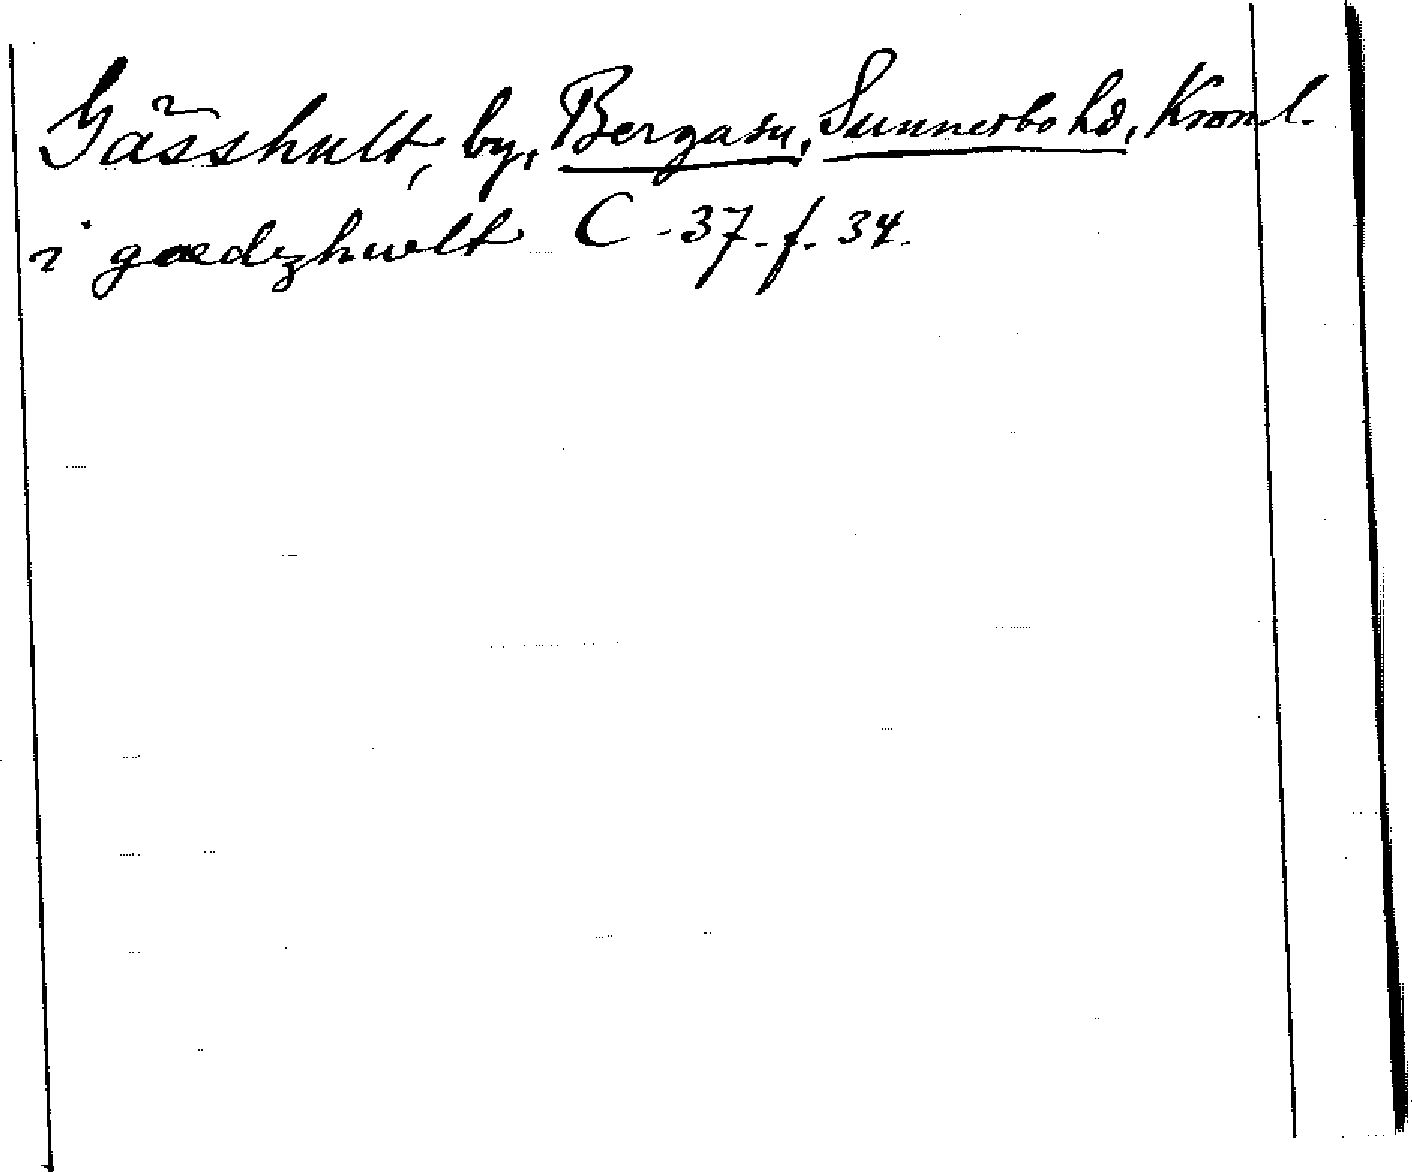 Gässhult, by, Berga sn, Sunnerbo hd, Kronl.
i gædzhwlt C-37. f. 34.